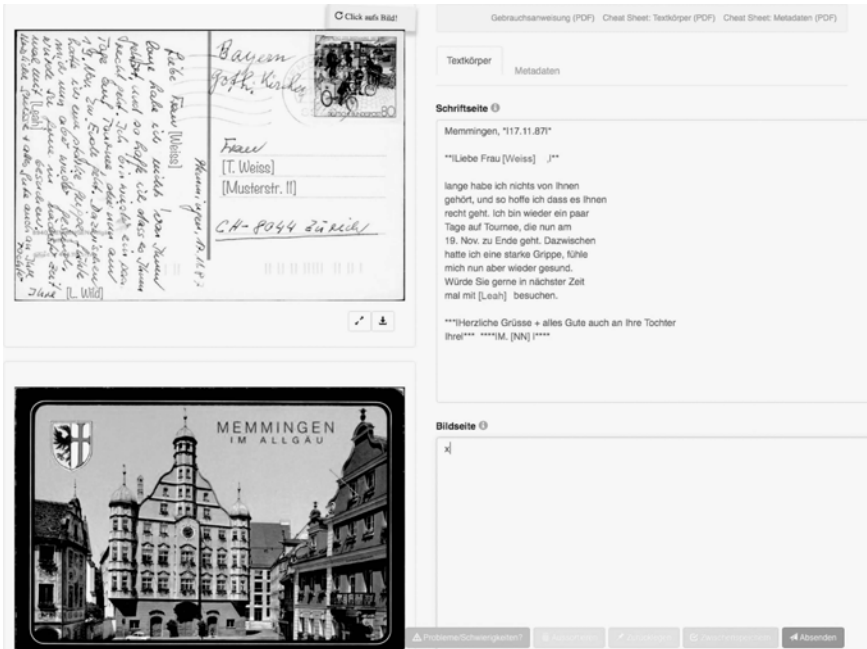 Click aufs Bild!
Bayern
goth. Kirche
DEUTSCHE BUNDESPOST 80
Frau
[T. Weiss]
[Musterstr. 11]
CH-8044 Zürich
Memmingen, 17.11.87
Liebe Frau [Weiss]
lange habe ich nichts von Ihnen
gehört, und so hoffe ich dass es Ihnen
recht geht. Ich bin wieder ein paar
Tage auf Tournee die nun am
19. Nov. zu Ende geht. Dazwischen
hatte ich eine starke Grippe, fühle
mich nun aber wieder gesund.
Würde Sie gerne in nächster Zeit
mal mit [Leah] besuchen.
Herzliche Grüsse + alles Gute auch an Ihre
Tochter
Ihre [L. Wild]
MEMMINGEN
IM ALLGÄU
Gebrauchsanweisung (PDF) Cheat Sheet: Textkörper (PDF) Cheat Sheet: Metadaten (PDF)
Textkörper
Metadaten
Schriftseite
Memmingen, *|17.11.87|*
**|Liebe Frau [Weiss] ,|**
lange habe ich nichts von Ihnen
gehört, und so hoffe ich dass es Ihnen
recht geht. Ich bin wieder ein paar
Tage auf Tournee, die nun am
19. Nov. zu Ende geht. Dazwischen
hatte ich eine starke Grippe, fühle
mich nun aber wieder gesund.
Würde Sie gerne in nächster Zeit
mal mit [Leah] besuchen.
***|Herzliche Grüsse + alles Gute auch an Ihre Tochter
Ihre|*** ****|M. [NN] |****
Bildseite
x
Probleme/Schwierigkeiten?
Absenden